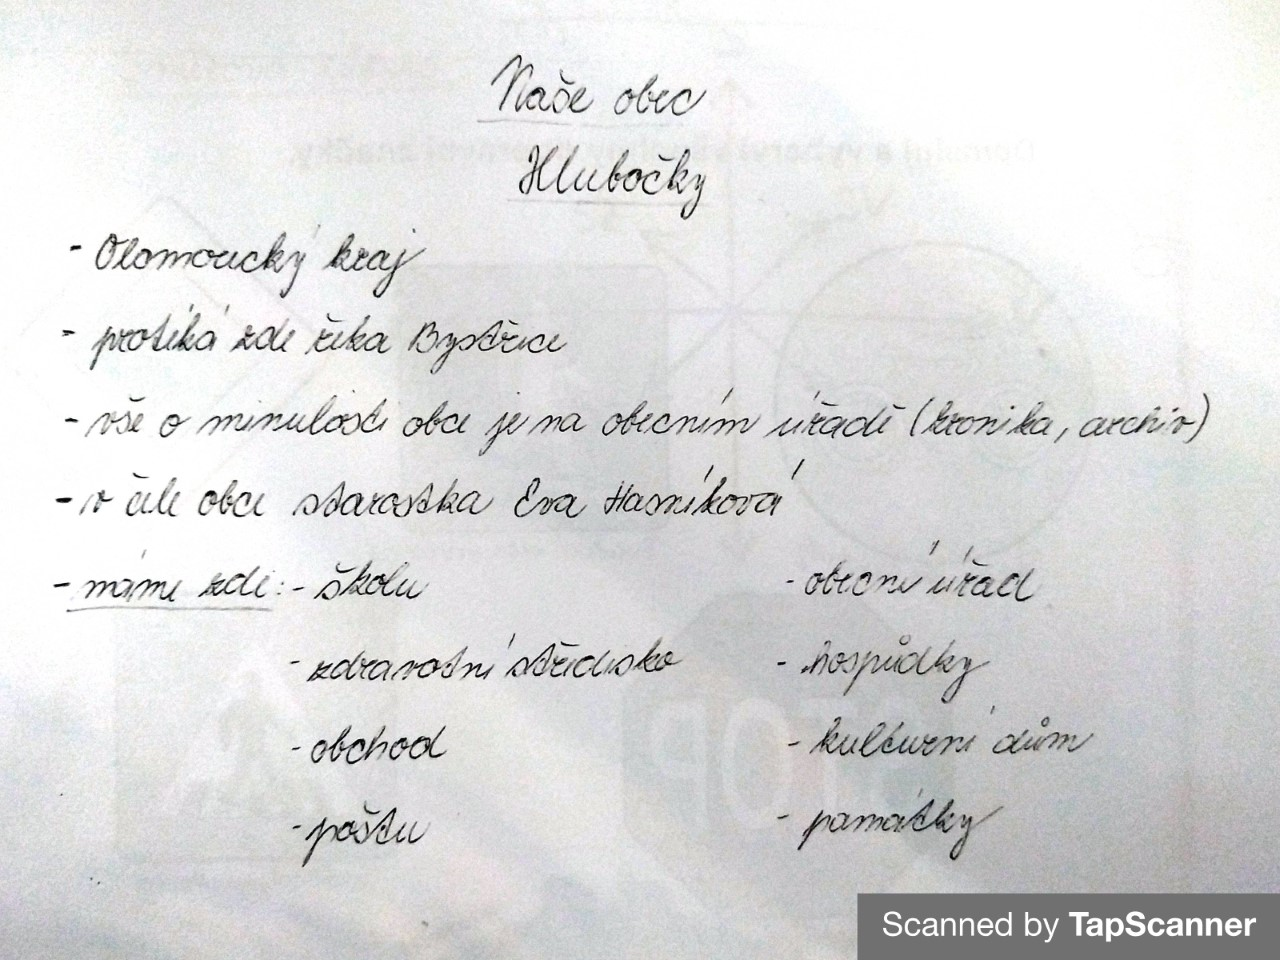 Naše obec
Hlubočky
- Olomoucký kraj
- protéká zde řeka Bystřice
- vše o minulosti obce je na obecním úřadě (kronika, archiv)
- v čele obce starostka Eva Hasníková
- máme zde: - školu - obecní úřad
- zdravotní středisko - hospůdky
- obchod - kulturní dům
- poštu - památky
Scanned by TapScanner